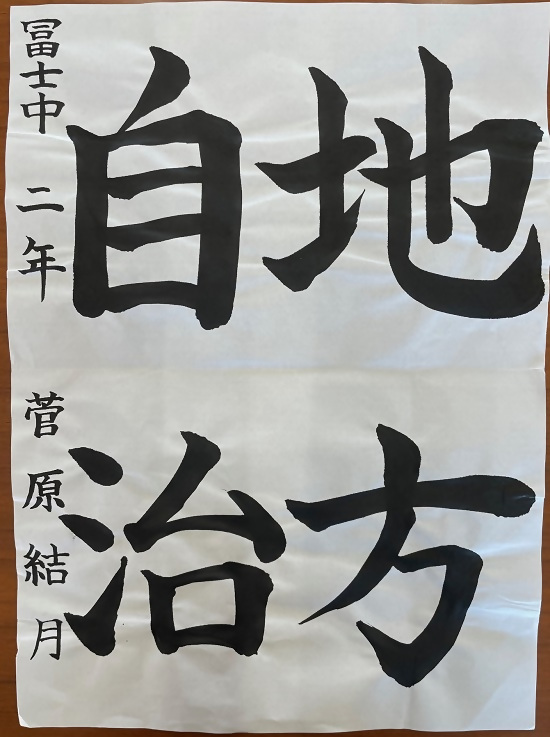 地方
自治
冨士中 二年 菅原結月